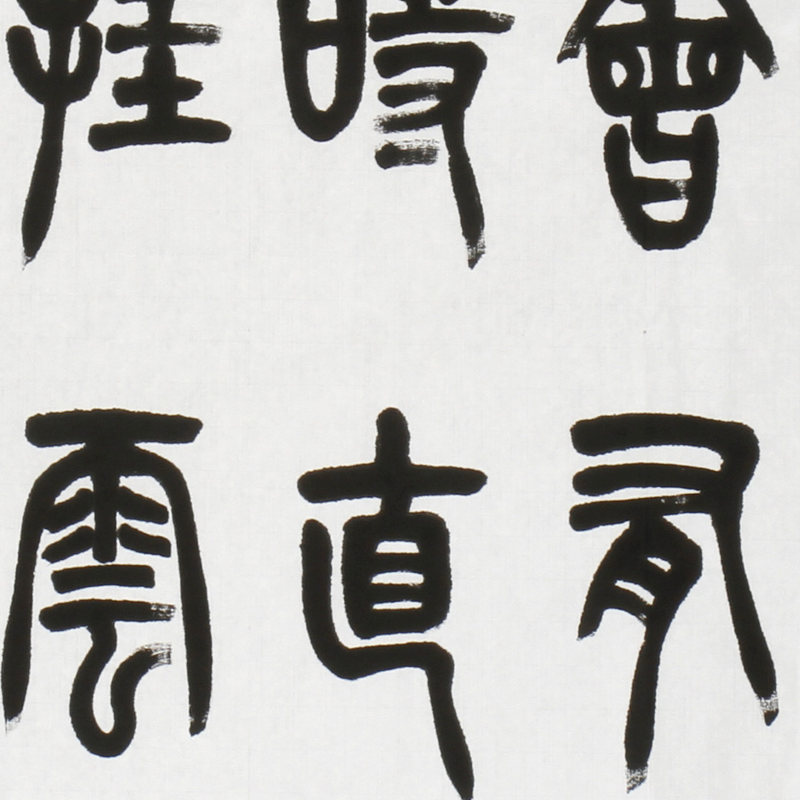 會有
時直
挂雲